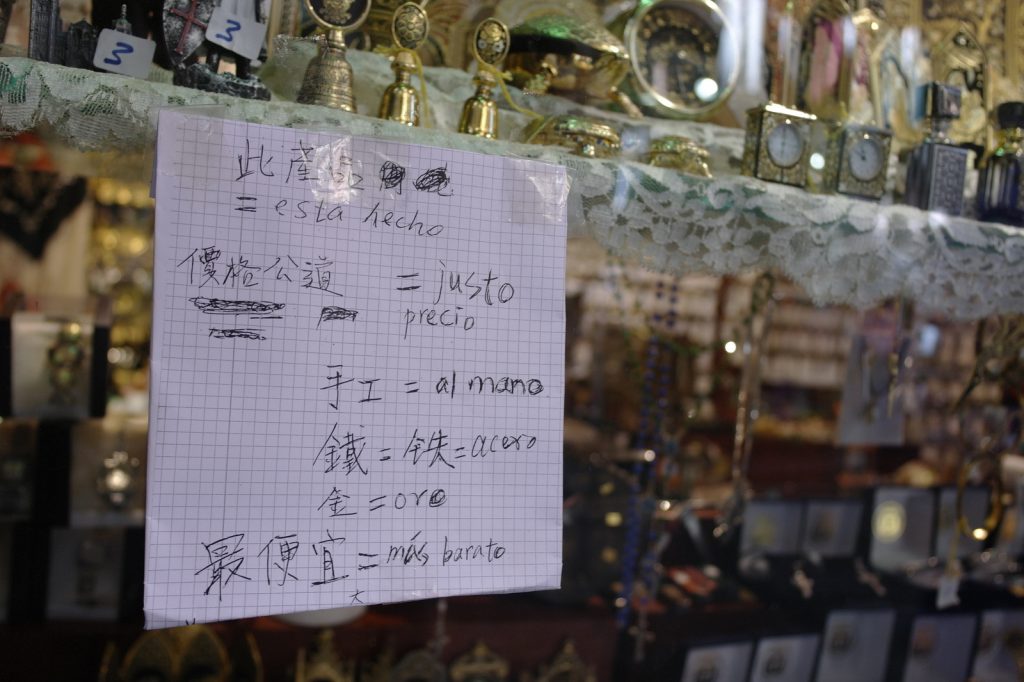 3
3
此產品
= esta hecho
價格公道 = justo
precio
手工 = al mano
鐵 = 铁 = acero
金 = oro
最便宜 = más barato
大